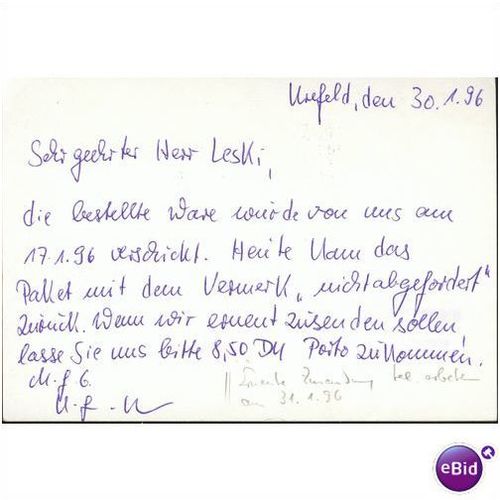 Krefeld, den 30.1.96
Sehr geehrter Herr Leski,
die bestellte Ware wurde von uns am
17.1.96 verschickt. Heute kam das
Paket mit dem Vermerk „nicht abgefordert“
zurück. Wenn wir erneut zusenden sollen
lasse Sie uns bitte 8,50 DM Porto zukommen.
M.f.G.
Zusendung tel. erbeten
am 31.1.96
eBid